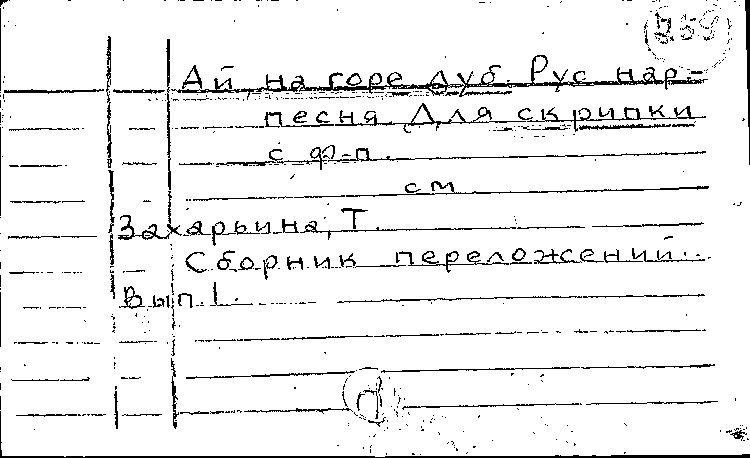 259
Ай, на горе дуб. Рус нар-
песня Для скрипки
с ф-п.
см
Захарьина, Т.
Сборник переложений..
Вып. 1.